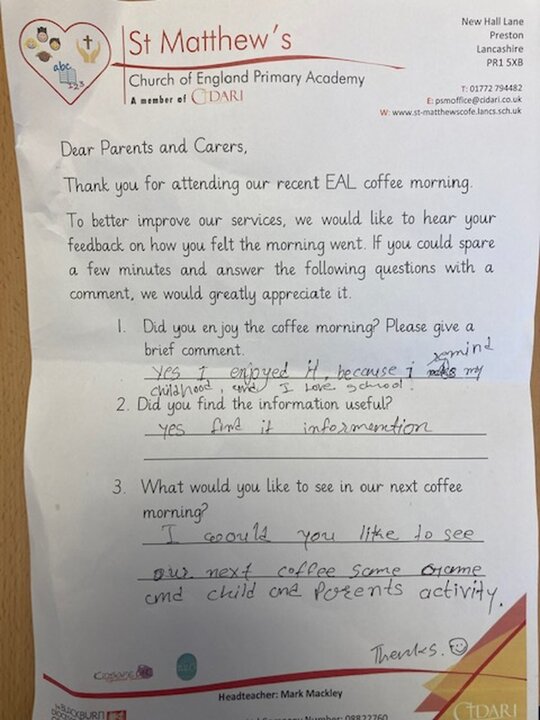 abc
123
St Matthew's
Church of England Primary Academy
A member of CIDARI
New Hall Lane
Preston
Lancashire
PR1 5XB
T: 01772 794482
E: psmoffice@cidari.co.uk
W: www.st-matthewscofe.lancs.sch.uk
Dear Parents and Carers,
Thank you for attending our recent EAL coffee morning.
To better improve our services, we would like to hear your
feedback on how you felt the morning went. If you could spare
a few minutes and answer the following questions with a
comment, we would greatly appreciate it.
1. Did you enjoy the coffee morning? Please give a
brief comment.
remind
Yes I enjoyed it, because i my
childhood, and I Love school!
2. Did you find the information useful?
Yes find it informention
3. What would you like to see in our next coffee
morning?
I would you like to see
our next coffee some game
and child and Parents activity.
Thanks.
Headteacher: Mark Mackley
Company Number: 08822760
BLACKBURN
CIDARI